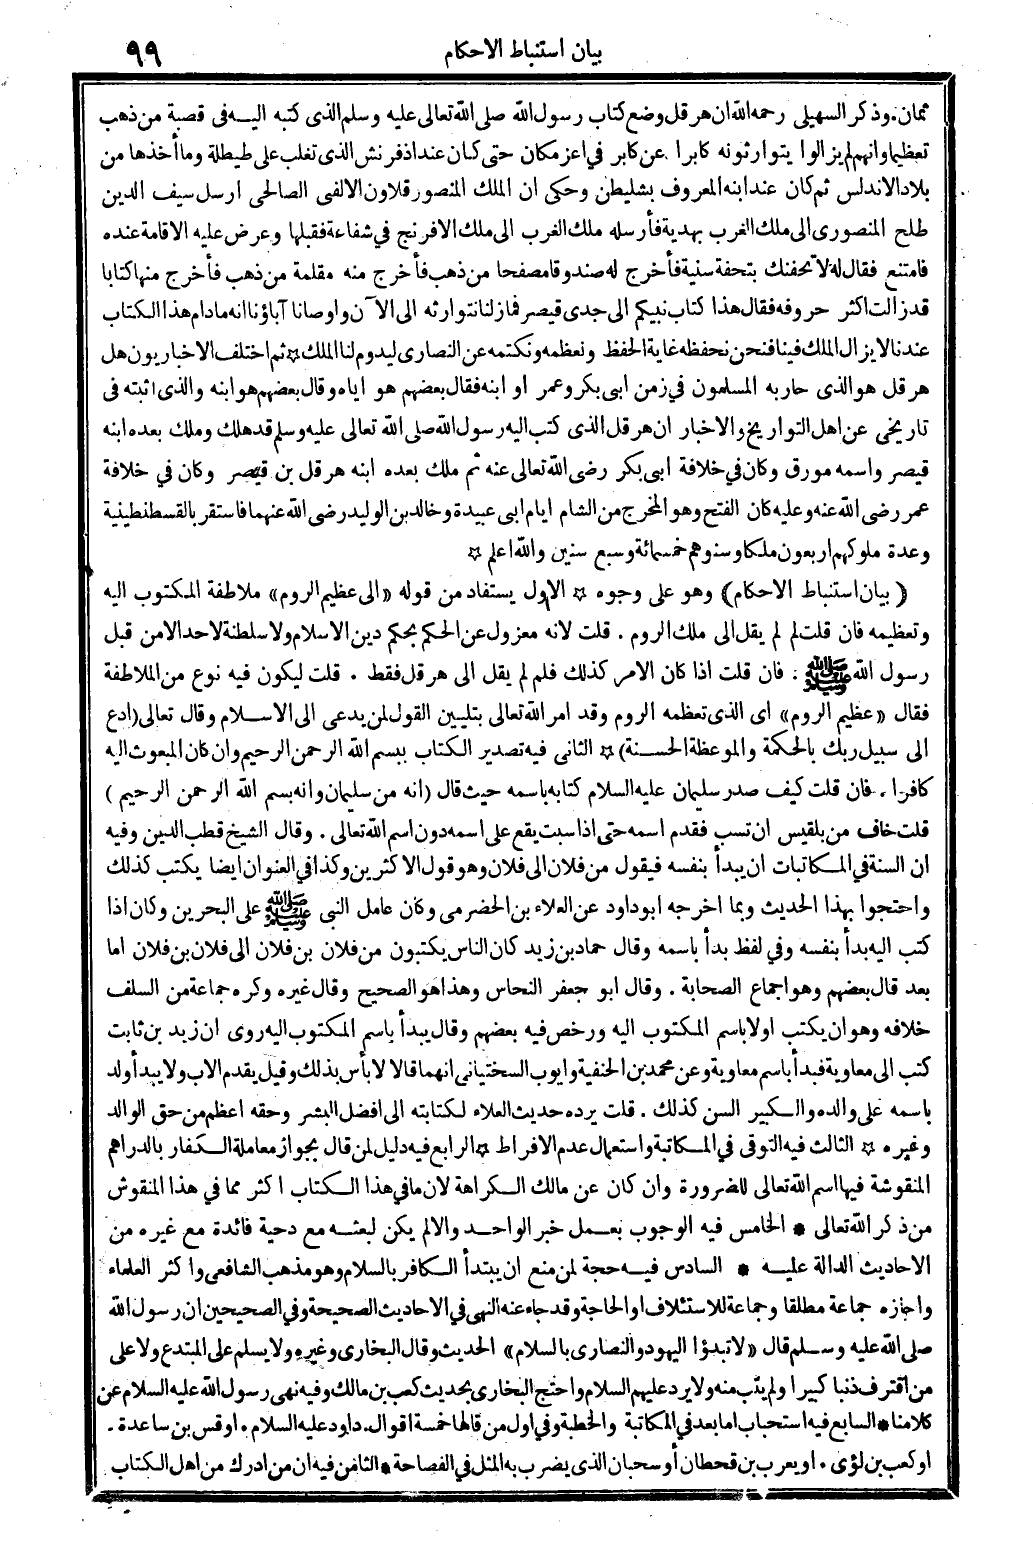 بيان استنباط الاحكام ٩٩
ثمان. وذكر السهيلى رحمه الله ان هرقل وضع كتاب رسول الله صلى الله تعالى عليه وسلم الذى كتبه اليه فى قصبة من ذهب
تعظيما وانهم لم يزالوا يتوارثونه كابرا عن كابر في اعز مكان حتى كان عند اذفرنش الذى تغلب على طيطلة وما أخذها من
بلاد الاندلس ثم كان عند ابنه المعروف بشليطن وحكى ان الملك المنصور قلاون الالفى الصالحى ارسل سيف الدين
طلح المنصورى الى ملك الغرب بهدية فأرسله ملك الغرب الى ملك الافرنج في شفاعة فقبلها وعرض عليه الاقامة عنده
فامتنع فقال له لاتحفنك بتحفة سنية فأخرج له صندوقا مصفحا من ذهب فأخرج منه مقلمة من ذهب فأخرج منها كتابا
قد زالت اكثر حروفه فقال هذا كتاب نبيكم الى جدى قيصر فما زلنا نتوارثه الى الآن واوصانا آباؤنا انه مادام هذا الكتاب
عندنا لايزال الملك فينا فنحن نحفظه غاية الحفظ ونعظمه ونكتمه عن النصارى ليدوم لنا الملك ☆ ثم اختلف الاخباريون هل
هرقل هو الذى حاربه المسلمون في زمن ابى بكر وعمر او ابنه فقال بعضهم هو اياه وقال بعضهم هو ابنه والذى اثبته فى
تاريخى عن اهل التواريخ والاخبار ان هرقل الذى كتب اليه رسول الله صلى الله تعالى عليه وسلم قد هلك وملك بعده ابنه
قيصر واسمه مورق وكان في خلافة ابى بكر رضى الله تعالى عنه ثم ملك بعده ابنه هرقل بن قيصر وكان في خلافة
عمر رضى الله عنه وعليه كان الفتح وهو المخرج من الشام ايام ابى عبيدة وخالد بن الوليد رضى الله عنهما فاستقر بالقسطنطينية
وعدة ملوكهم اربعون ملكا وسنوهم خمسمائة وسبع سنين والله اعلم ☆
( بيان استنباط الاحكام ) وهو على وجوه ☆ الاول يستفاد من قوله «الى عظيم الروم» ملاطفة المكتوب اليه
وتعظيمه فان قلت لم لم يقل الى ملك الروم . قلت لانه معزول عن الحكم بحكم دين الاسلام ولا سلطنة لاحد الا من قبل
رسول الله ﷺ . فان قلت اذا كان الامر كذلك فلم لم يقل الى هرقل فقط . قلت ليكون فيه نوع من الملاطفة
فقال «عظيم الروم» اى الذى تعظمه الروم وقد امر الله تعالى بتليين القول لمن يدعى الى الاسلام وقال تعالى (ادع
الى سبيل ربك بالحكمة والموعظة الحسنة) ☆ الثانى فيه تصدير الكتاب ببسم الله الرحمن الرحيم وان كان المبعوث اليه
كافرا . فان قلت كيف صدر سليمان عليه السلام كتابه باسمه حيث قال (انه من سليمان وانه بسم الله الرحمن الرحيم )
قلت خاف من بلقيس ان تسب فقدم اسمه حتى اذا سبت يقع على اسمه دون اسم الله تعالى . وقال الشيخ قطب الدين وفيه
ان السنة في المكاتبات ان يبدأ بنفسه فيقول من فلان الى فلان وهو قول الاكثرين وكذا في العنوان ايضا يكتب كذلك
واحتجوا بهذا الحديث وبما اخرجه ابو داود عن العلاء بن الحضرمى وكان عامل النبى ﷺ على البحرين وكان اذا
كتب اليه بدأ بنفسه وفي لفظ بدأ باسمه وقال حماد بن زيد كان الناس يكتبون من فلان بن فلان الى فلان بن فلان اما
بعد قال بعضهم وهو اجماع الصحابة . وقال ابو جعفر النحاس وهذا هو الصحيح وقال غيره وكره جماعة من السلف
خلافه وهو ان يكتب اولا باسم المكتوب اليه ورخص فيه بعضهم وقال يبدأ باسم المكتوب اليه روى ان زيد بن ثابت
كتب الى معاوية فبدأ باسم معاوية وعن محمد بن الحنفية وايوب السختيانى انهما قالا لا بأس بذلك وقيل يقدم الاب ولا يبدأ ولد
باسمه على والده والكبير السن كذلك . قلت يرده حديث العلاء لكتابته الى افضل البشر وحقه اعظم من حق الوالد
وغيره ☆ الثالث فيه التوقى في المكاتبة واستعمال عدم الافراط ☆ الرابع فيه دليل لمن قال بجواز معاملة الكفار بالدراهم
المنقوشة فيها اسم الله تعالى للضرورة وان كان عن مالك الكراهة لان مافي هذا الكتاب اكثر مما في هذا المنقوش
من ذكر الله تعالى * الخامس فيه الوجوب بعمل خبر الواحد والالم يكن لبعثه مع دحية فائدة مع غيره من
الاحاديث الدالة عليه * السادس فيه حجة لمن منع ان يبتدأ الكافر بالسلام وهو مذهب الشافعى واكثر العلماء
واجازه جماعة مطلقا وجماعة للاستئلاف او الحاجة وقد جاء عنه النهى في الاحاديث الصحيحة وفي الصحيحين ان رسول الله
صلى الله عليه وسلم قال «لا تبدؤا اليهود والنصارى بالسلام» الحديث وقال البخارى وغيره ولا يسلم على المبتدع ولا على
من اقترف ذنبا كبيرا ولم يتب منه ولا يرد عليهم السلام واحتج البخارى بحديث كعب بن مالك وفيه نهى رسول الله عليه السلام عن
كلامنا * السابع فيه استحباب اما بعد في المكاتبة والخطبة وفي اول من قالها خمسة اقوال. داود عليه السلام. او قس بن ساعدة .
او كعب بن لؤى . او يعرب بن قحطان أو سحبان الذى يضرب به المثل في الفصاحة * الثامن فيه ان من ادرك من اهل الكتاب